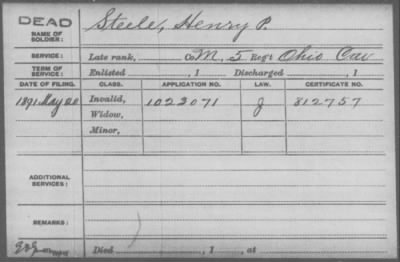 DEAD
NAME OF SOLDIER: Steele, Henry P.
SERVICE: Late rank, Co. M. 5 Reg't Ohio Cav
TERM OF SERVICE: Enlisted , 1 Discharged , 1
DATE OF FILING. CLASS. APPLICATION NO. LAW. CERTIFICATE NO.
1891 May 20 Invalid, 1023071 J 812757
Widow,
Minor,
ADDITIONAL SERVICES:
REMARKS:
Died , 1 , at